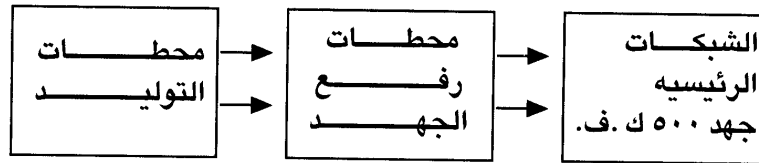 محطات
التوليد
محطات
رفع
الجهد
الشبكات
الرئيسيه
جهد ٥٠٠ ك .ف.